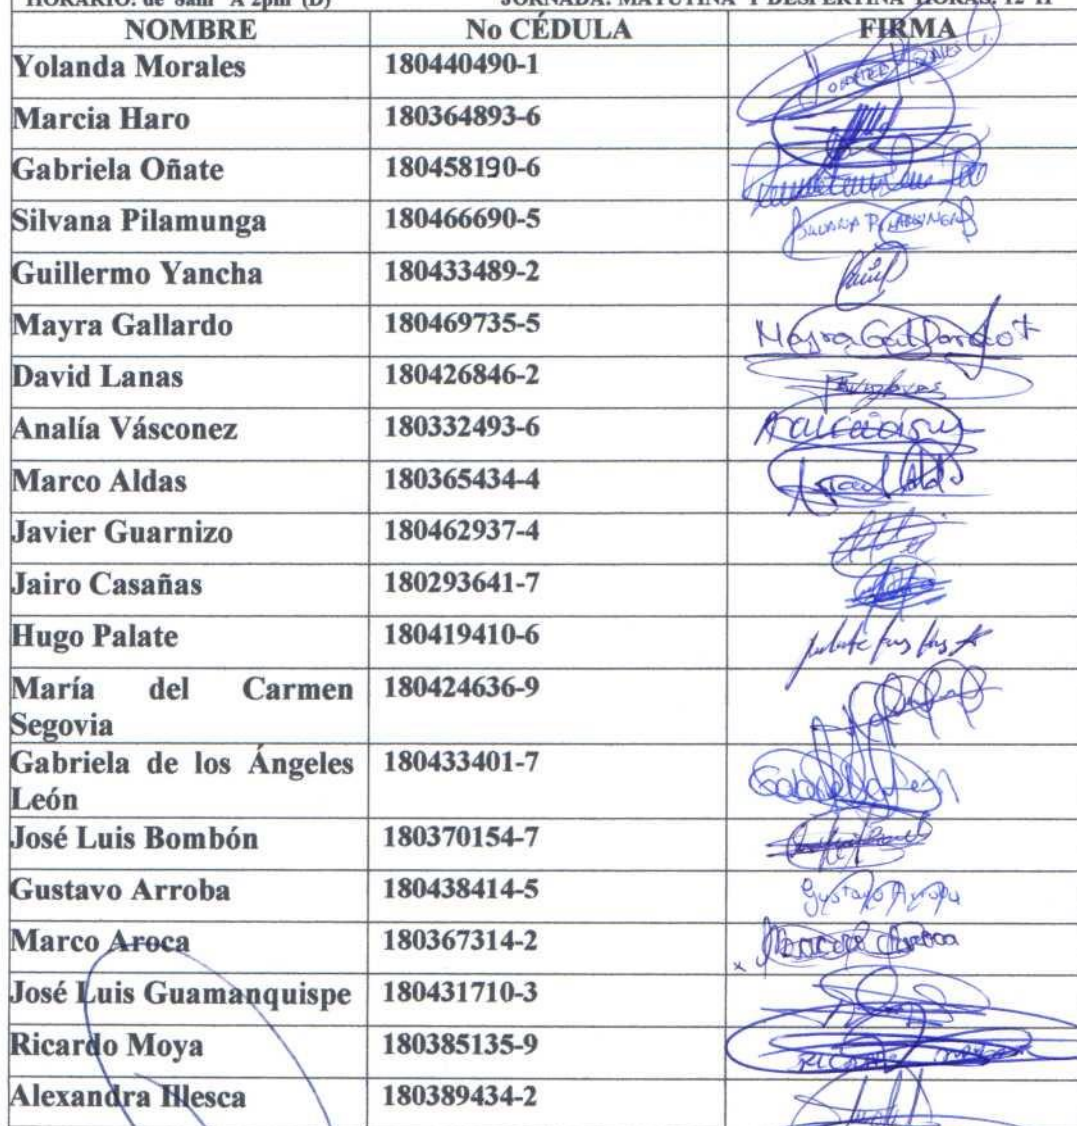 HORARIO: de 8am A 2pm (D) JORNADA: MATUTINA Y DESPERTINA HORAS: 12-11
NOMBRE No CÉDULA FIRMA
Yolanda Morales 180440490-1
Marcia Haro 180364893-6
Gabriela Oñate 180458190-6
Silvana Pilamunga 180466690-5 Silvana Pilamunga
Guillermo Yancha 180433489-2
Mayra Gallardo 180469735-5 Mayra Gallardo
David Lanas 180426846-2
Analía Vásconez 180332493-6
Marco Aldas 180365434-4
Javier Guarnizo 180462937-4
Jairo Casañas 180293641-7
Hugo Palate 180419410-6
María del Carmen 180424636-9
Segovia
Gabriela de los Ángeles 180433401-7 Gabriela León
León
José Luis Bombón 180370154-7
Gustavo Arroba 180438414-5 Gustavo Arroba
Marco Aroca 180367314-2
José Luis Guamanquispe 180431710-3
Ricardo Moya 180385135-9
Alexandra Illesca 180389434-2